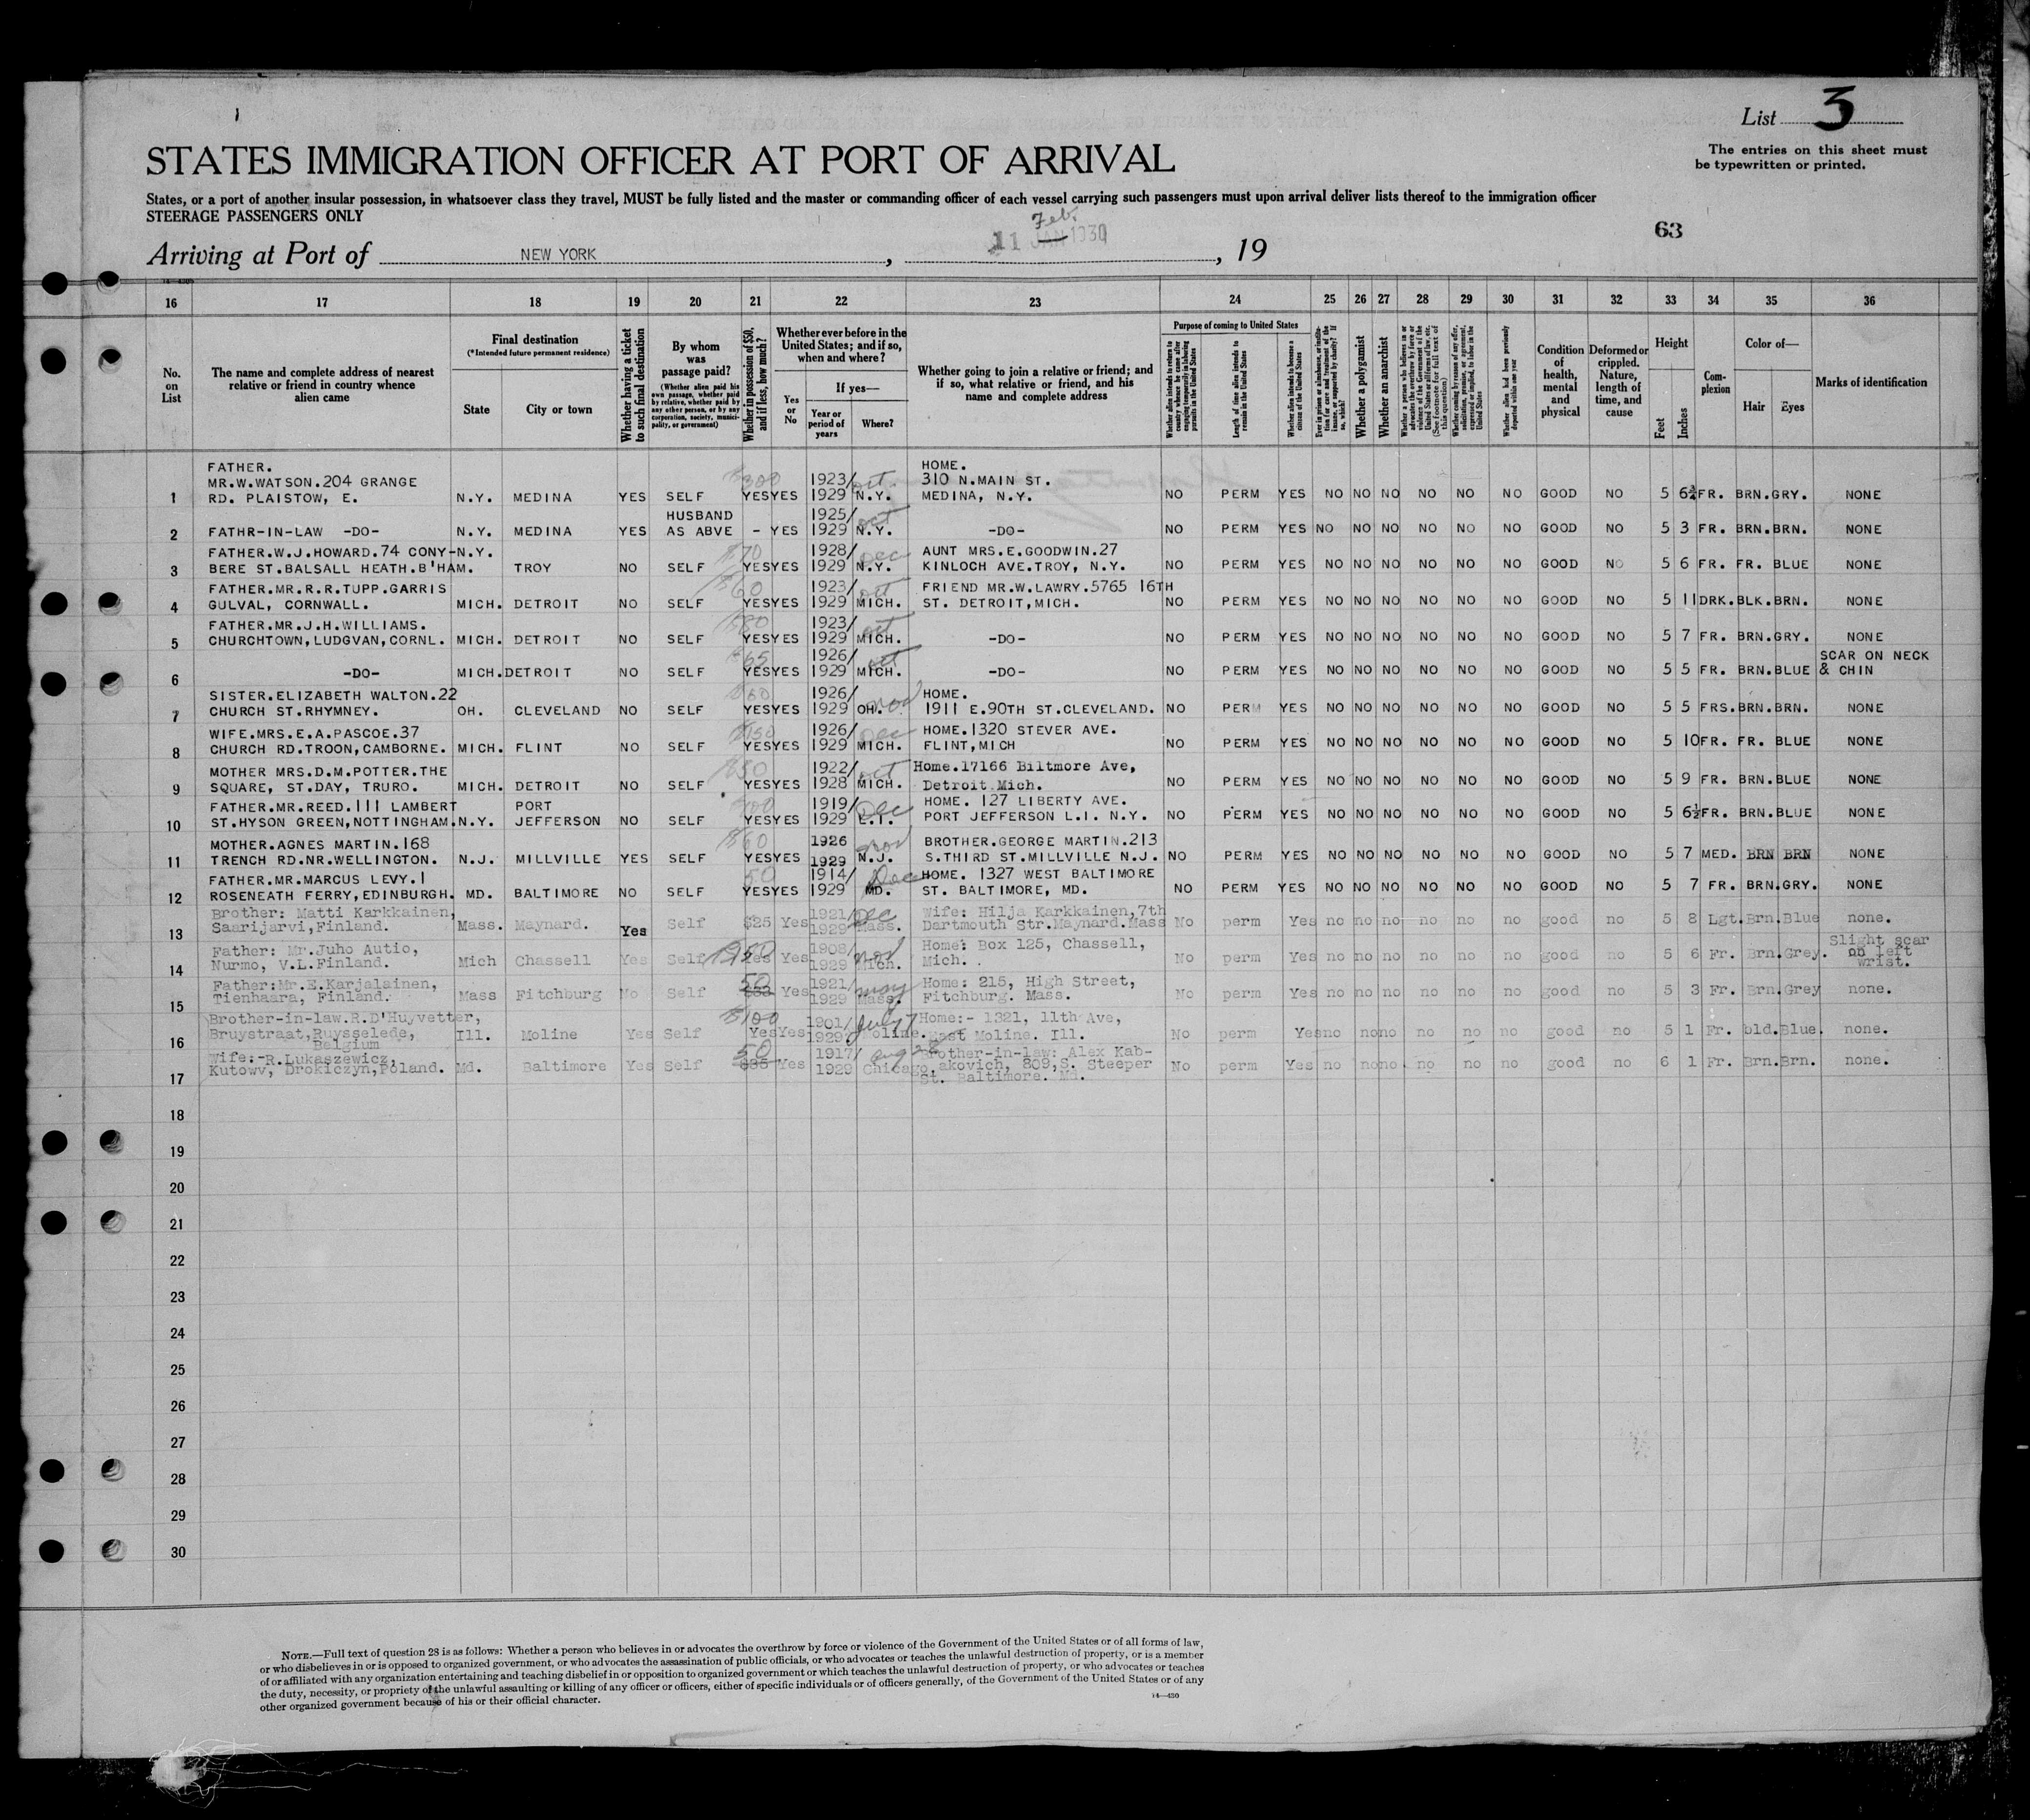 List 3
The entries on this sheet must
be typewritten or printed.
STATES IMMIGRATION OFFICER AT PORT OF ARRIVAL
States, or a port of another insular possession, in whatsoever class they travel, MUST be fully listed and the master or commanding officer of each vessel carrying such passengers must upon arrival deliver lists thereof to the immigration officer
STEERAGE PASSENGERS ONLY
Feb.
63
Arriving at Port of NEW YORK, 11 JAN 1930, 19
16 17 18 19 20 21 22 23 24 25 26 27 28 29 30 31 32 33 34 35 36
No. on List
The name and complete address of nearest relative or friend in country whence alien came
Final destination
(*Intended future permanent residence)
State
City or town
Whether having a ticket to such final destination
By whom was passage paid?
(Whether alien paid his own passage, whether paid by relative, whether paid by any other person, or by any corporation, society, municipality, or government)
Whether in possession of $50, and if less, how much?
Whether ever before in the United States; and if so, when and where?
Yes or No
If yes—
Year or period of years
Where?
Whether going to join a relative or friend; and if so, what relative or friend, and his name and complete address
Purpose of coming to United States
Length of time alien intends to remain in the United States
Whether alien intends to become a citizen of the United States
Whether a polygamist
Whether an anarchist
Condition of health, mental and physical
Deformed or crippled. Nature, length of time, and cause
Height
Feet
Inches
Complexion
Color of—
Hair
Eyes
Marks of identification
FATHER. HOME.
MR.W.WATSON.204 GRANGE $300 1923/ oct. 310 N.MAIN ST.
1 RD. PLAISTOW, E. N.Y. MEDINA YES SELF YES YES 1929 N.Y. MEDINA, N.Y. NO PERM YES NO NO NO NO NO NO GOOD NO 5 6¾ FR. BRN. GRY. NONE
HUSBAND 1925/ oct
2 FATHR-IN-LAW -DO- N.Y. MEDINA YES AS ABVE - YES 1929 N.Y. -DO- NO PERM YES NO NO NO NO NO NO GOOD NO 5 3 FR. BRN. BRN. NONE
FATHER.W.J.HOWARD.74 CONY- N.Y. $70 1928/ Dec AUNT MRS.E.GOODWIN.27
3 BERE ST.BALSALL HEATH.B'HAM. TROY NO SELF YES YES 1929 N.Y. KINLOCH AVE.TROY, N.Y. NO PERM YES NO NO NO NO NO NO GOOD NO 5 6 FR. FR. BLUE NONE
FATHER.MR.R.R.TUPP.GARRIS $60 1923/ oct FRIEND MR.W.LAWRY.5765 16TH
4 GULVAL, CORNWALL. MICH. DETROIT NO SELF YES YES 1929 MICH. ST. DETROIT,MICH. NO PERM YES NO NO NO NO NO NO GOOD NO 5 11 DRK. BLK. BRN. NONE
FATHER.MR.J.H.WILLIAMS. $80 1923/ oct
5 CHURCHTOWN,LUDGVAN,CORNL. MICH. DETROIT NO SELF YES YES 1929 MICH. -DO- NO PERM YES NO NO NO NO NO NO GOOD NO 5 7 FR. BRN. GRY. NONE
$65 1926/ oct SCAR ON NECK
6 -DO- MICH. DETROIT NO SELF YES YES 1929 MICH. -DO- NO PERM YES NO NO NO NO NO NO GOOD NO 5 5 FR. BRN. BLUE & CHIN
SISTER.ELIZABETH WALTON.22 $60 1926/ nov HOME.
7 CHURCH ST.RHYMNEY. OH. CLEVELAND NO SELF YES YES 1929 OH. 1911 E.90TH ST.CLEVELAND. NO PERM YES NO NO NO NO NO NO GOOD NO 5 5 FRS. BRN. BRN. NONE
WIFE.MRS.E.A.PASCOE.37 $150 1926/ Dec HOME.1320 STEVER AVE.
8 CHURCH RD.TROON,CAMBORNE. MICH. FLINT NO SELF YES YES 1929 MICH. FLINT,MICH NO PERM YES NO NO NO NO NO NO GOOD NO 5 10 FR. FR. BLUE NONE
MOTHER MRS.D.M.POTTER.THE $50 1922/ oct Home.17166 Biltmore Ave,
9 SQUARE, ST.DAY, TRURO. MICH. DETROIT NO SELF YES YES 1928 MICH. Detroit Mich. NO PERM YES NO NO NO NO NO NO GOOD NO 5 9 FR. BRN. BLUE NONE
FATHER.MR.REED.111 LAMBERT PORT 1919/ Dec HOME. 127 LIBERTY AVE.
10 ST.HYSON GREEN,NOTTINGHAM. N.Y. JEFFERSON NO SELF YES YES 1929 L.I. PORT JEFFERSON L.I. N.Y. NO PERM YES NO NO NO NO NO NO GOOD NO 5 6½ FR. BRN. BLUE NONE
MOTHER.AGNES MARTIN.168 $60 1926 nov BROTHER.GEORGE MARTIN.213
11 TRENCH RD.NR.WELLINGTON. N.J. MILLVILLE YES SELF YES YES 1929 N.J. S.THIRD ST.MILLVILLE N.J. NO PERM YES NO NO NO NO NO NO GOOD NO 5 7 MED. BRN BRN NONE
FATHER.MR.MARCUS LEVY.1 50 1914/ Dec HOME. 1327 WEST BALTIMORE
12 ROSENEATH FERRY,EDINBURGH. MD. BALTIMORE NO SELF YES YES 1929 MD. ST. BALTIMORE, MD. NO PERM YES NO NO NO NO NO NO GOOD NO 5 7 FR. BRN. GRY. NONE
Brother: Matti Karkkainen, 1921/ Dec Wife: Hilja Karkkainen,7th
13 Saarijarvi,Finland. Mass. Maynard. Yes Self $25 Yes 1929 Mass. Dartmouth Str.Maynard.Mass No perm Yes no no no no no no good no 5 8 Lgt. Brn. Blue none.
Father: Mr.Juho Autio, $150 1908/ nov Home: Box 125, Chassell, Slight scar
14 Nurmo, V.L.Finland. Mich Chassell Yes Self Yes Yes 1929 Mich. Mich. . No perm Yes no no no no no no good no 5 6 Fr. Brn. Grey. on left
wrist.
Father:Mr.E.Karjalainen, 50 1921/ may Home: 215, High Street,
15 Tienhaara, Finland. Mass Fitchburg No Self Yes 1929 Mass. Fitchburg. Mass. No perm Yes no no no no no no good no 5 3 Fr. Brn. Grey none.
Brother-in-law.R.D'Huyvetter, $100 1901/ July 7 Home:- 1321, 11th Ave,
16 Bruystraat,Ruysselede, Ill. Moline Yes Self Yes Yes 1929 Moline. East Moline. Ill. No perm Yes no no no no no no good no 5 1 Fr. bld. Blue. none.
Belgium
Wife:-R.Lukaszewicz, 50 1917/ aug 28 Brother-in-law: Alex Kab-
17 Kutowv, Drokiczyn,Poland. Md. Baltimore Yes Self $35 Yes 1929 Chicago, akovich, 809,S. Steeper No perm Yes no no no no no no good no 6 1 Fr. Brn. Brn. none.
St. Baltimore. Md.
18
19
20
21
22
23
24
25
26
27
28
29
30
NOTE.—Full text of question 28 is as follows: Whether a person who believes in or advocates the overthrow by force or violence of the Government of the United States or of all forms of law,
or who disbelieves in or is opposed to organized government, or who advocates the assassination of public officials, or who advocates or teaches the unlawful destruction of property, or is a member
of or affiliated with any organization entertaining and teaching disbelief in or opposition to organized government or which teaches the unlawful destruction of property, or who advocates or teaches
the duty, necessity, or propriety of the unlawful assaulting or killing of any officer or officers, either of specific individuals or of officers generally, of the Government of the United States or of any
other organized government because of his or their official character.
14—430